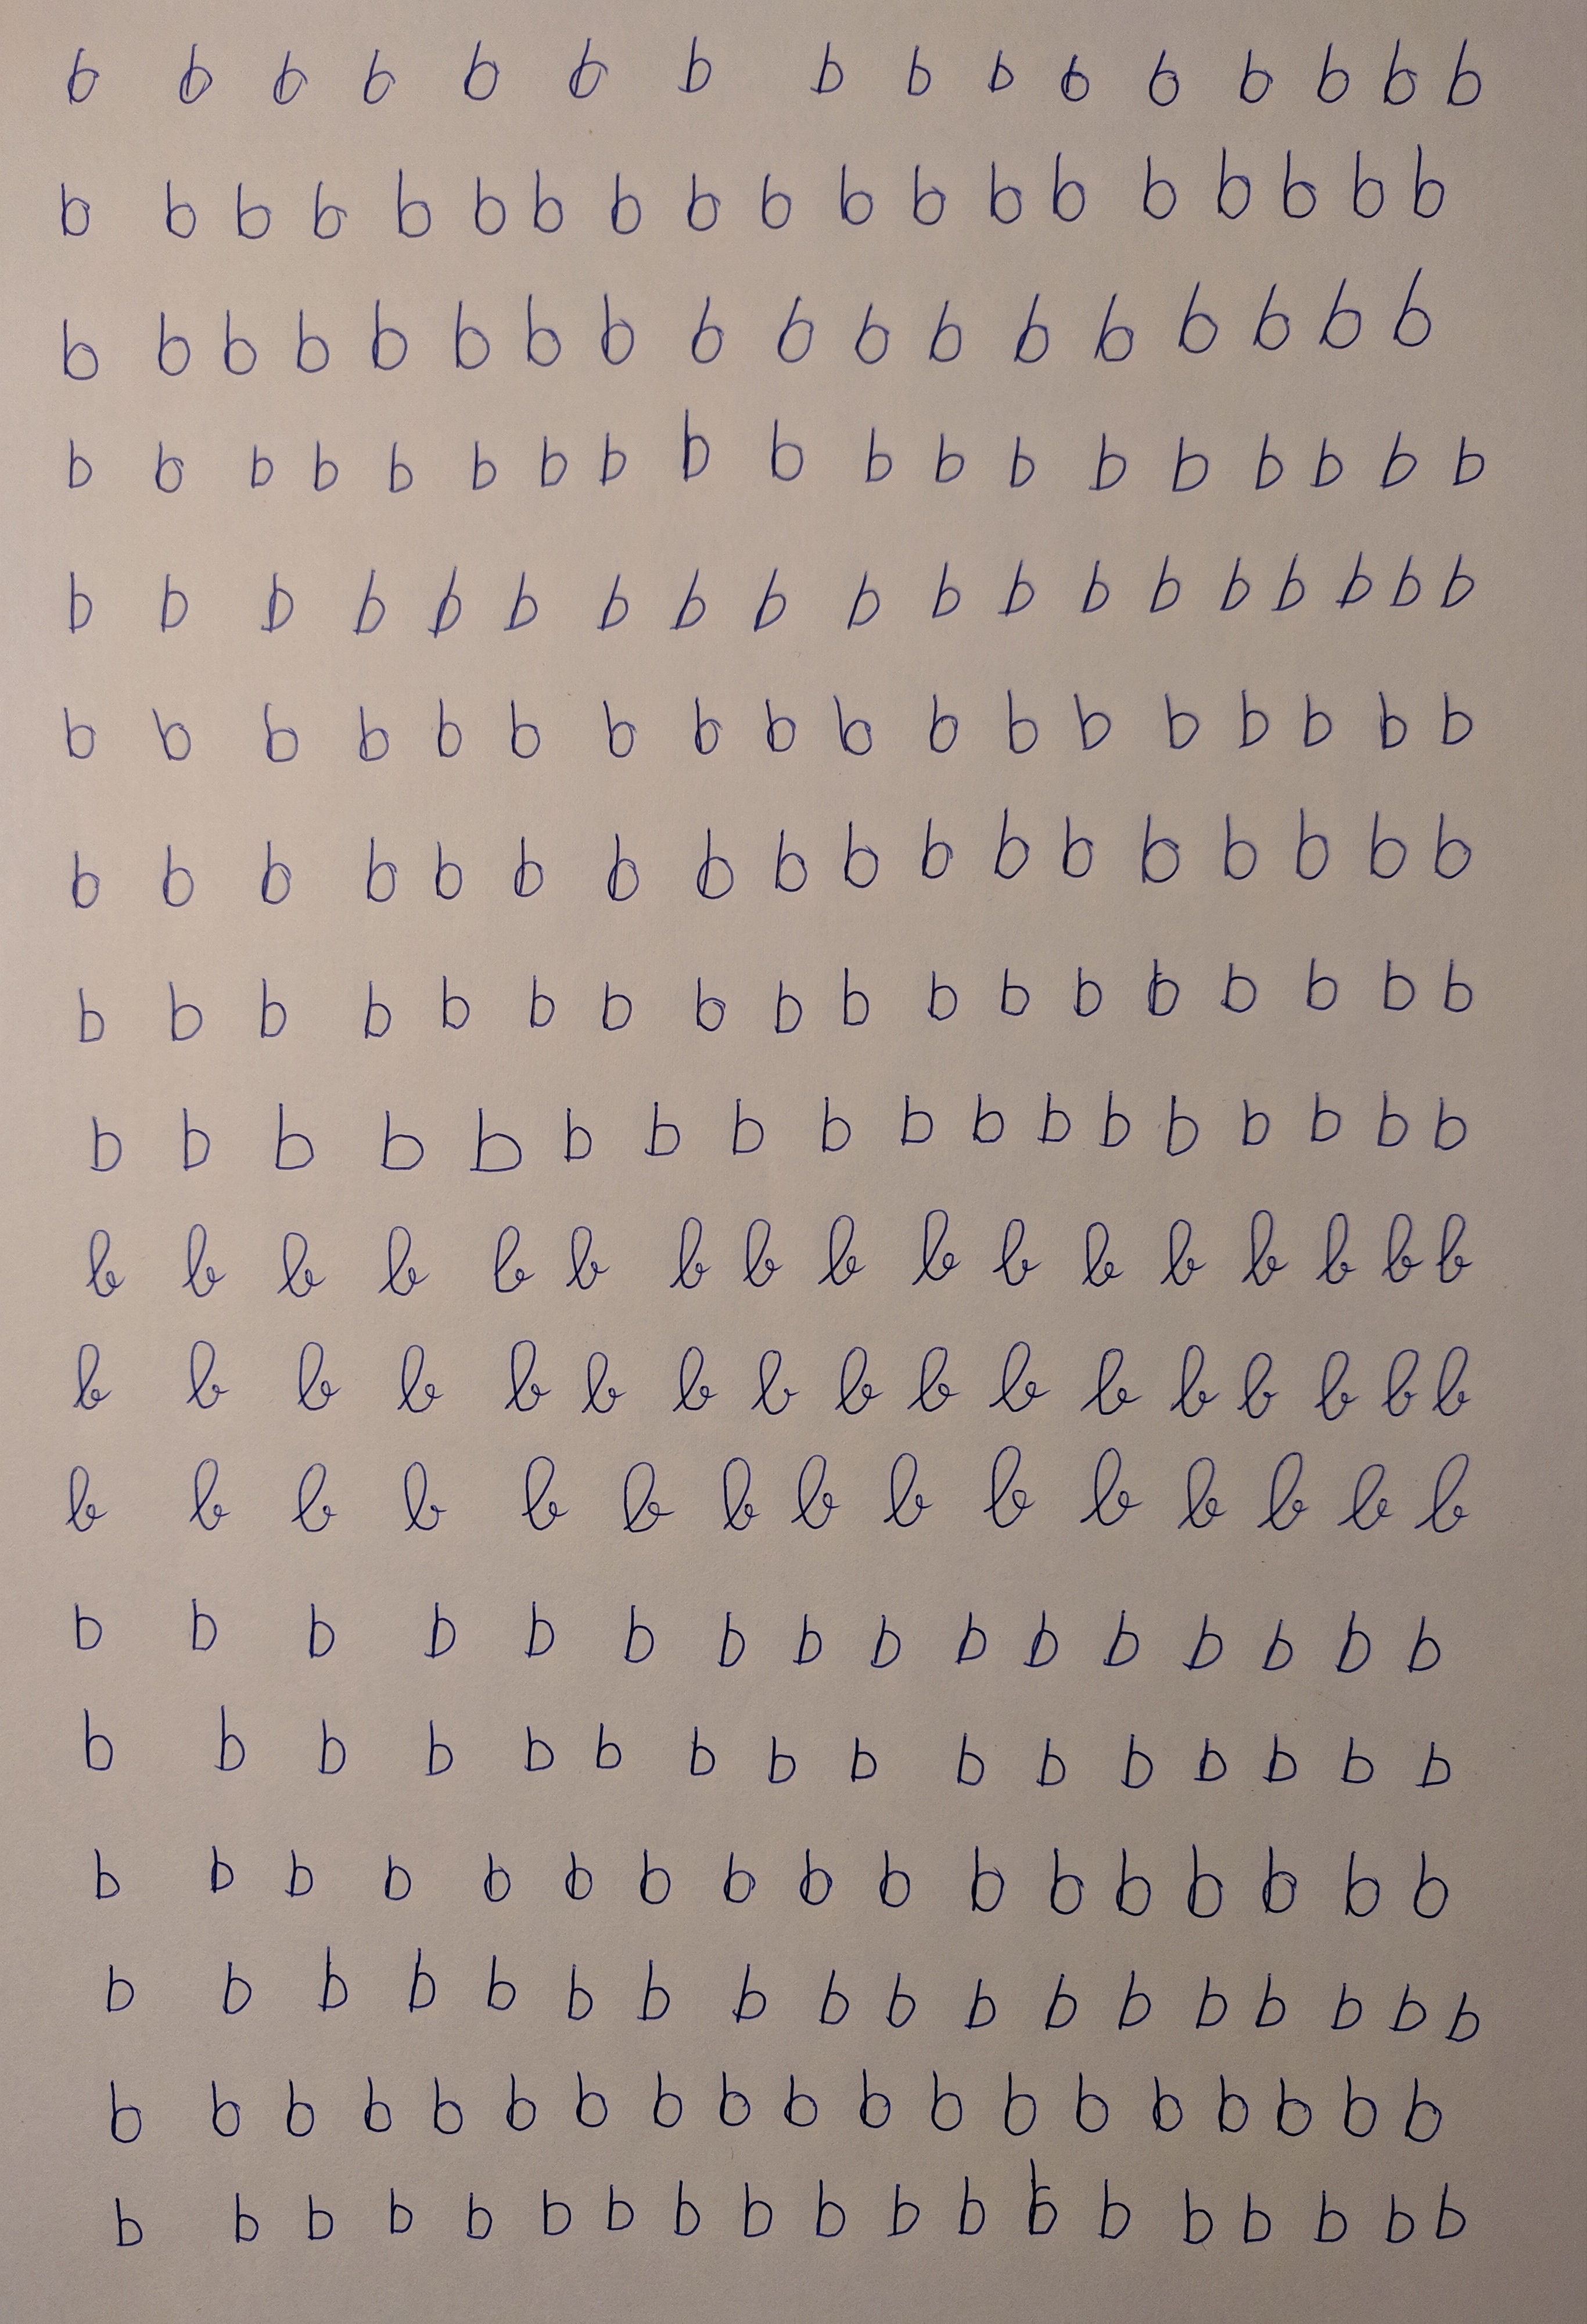 b b b b b b b b b b b b b b b b
b b b b b b b b b b b b b b b b b b b
b b b b b b b b b b b b b b b b b b
b b b b b b b b b b b b b b b b b b b
b b b b b b b b b b b b b b b b b b b
b b b b b b b b b b b b b b b b b b
b b b b b b b b b b b b b b b b b b
b b b b b b b b b b b b b b b b b b
b b b b b b b b b b b b b b b b b b
b b b b b b b b b b b b b b b b b
b b b b b b b b b b b b b b b b b
b b b b b b b b b b b b b b b
b b b b b b b b b b b b b b b b
b b b b b b b b b b b b b b b b
b b b b b b b b b b b b b b b b b
b b b b b b b b b b b b b b b b b b
b b b b b b b b b b b b b b b b b b b
b b b b b b b b b b b b b b b b b b b